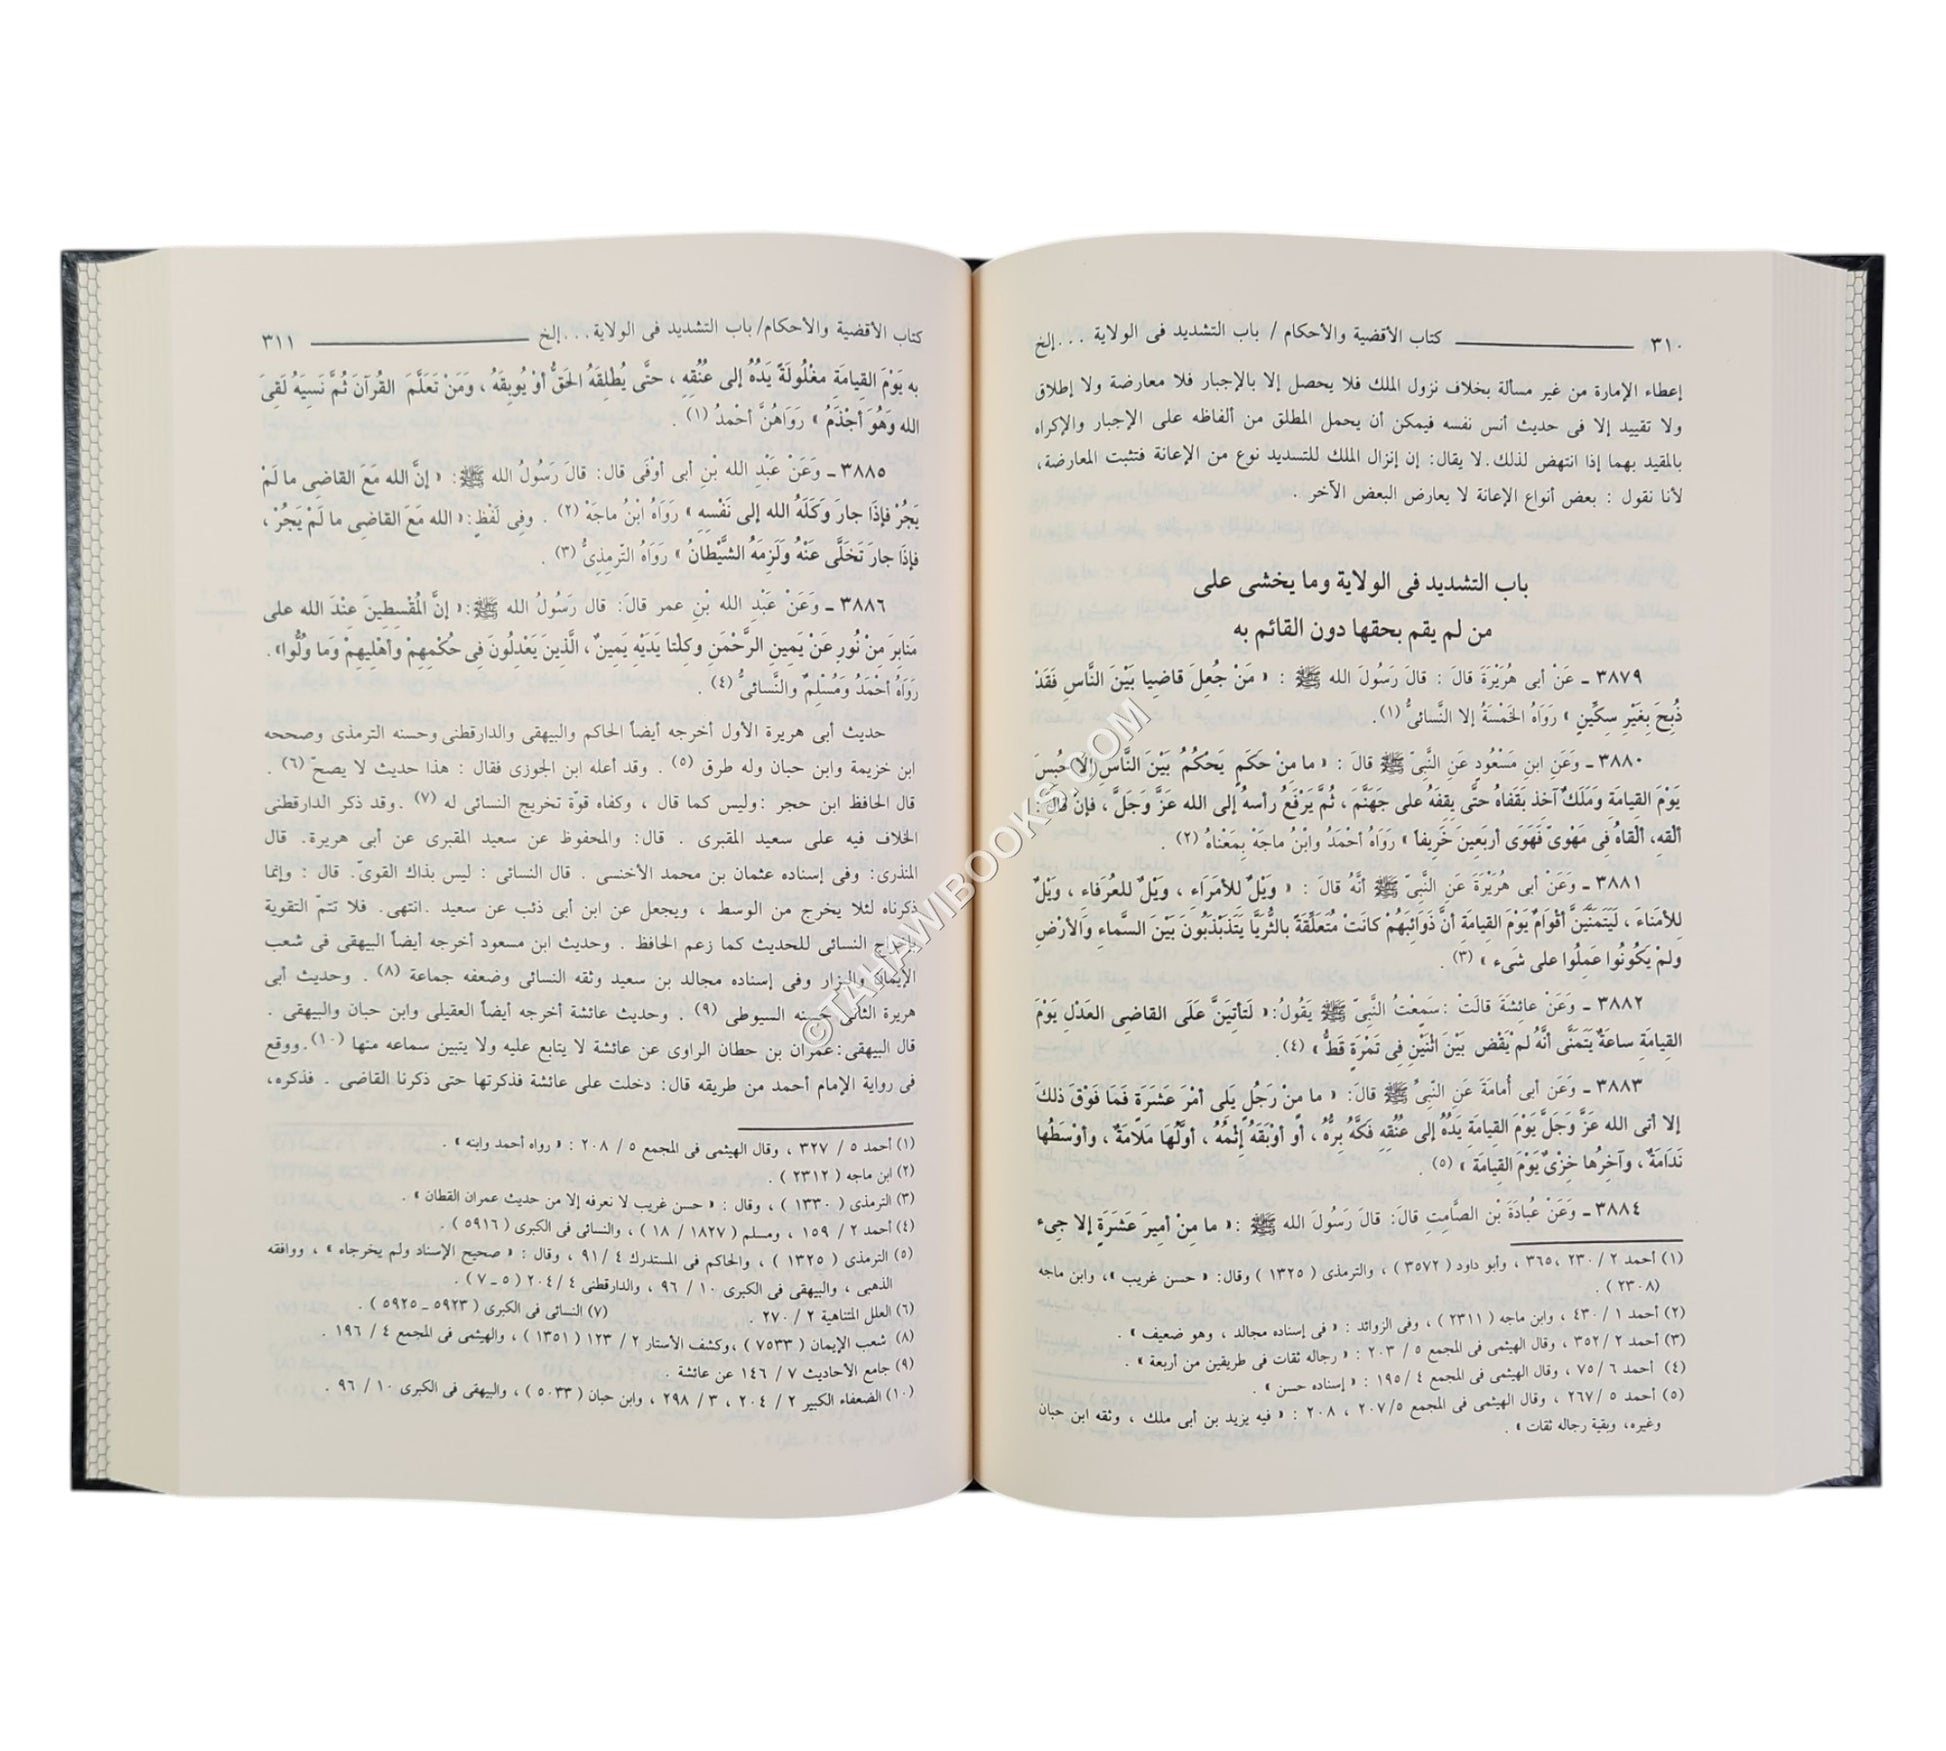 ٣١٠ كتاب الأقضية والأحكام / باب التشديد فى الولاية ...إلخ
إعطاء الإمارة من غير مسألة بخلاف نزول الملك فلا يحصل إلا بالإجبار فلا معارضة ولا إطلاق
ولا تقييد إلا فى حديث أنس نفسه فيمكن أن يحمل المطلق من ألفاظه على الإجبار والإكراه
بالمقيد بهما إذا انتهض لذلك. لا يقال: إن إنزال الملك للتسديد نوع من الإعانة فتثبت المعارضة،
لأنا نقول : بعض أنواع الإعانة لا يعارض البعض الآخر .
باب التشديد فى الولاية وما يخشى على
من لم يقم بحقها دون القائم به
٣٨٧٩ ـ عَنْ أبى هُرَيْرَةَ قالَ : قالَ رَسُولُ الله ﷺ : « مَنْ جُعِلَ قاضِيا بَيْنَ النَّاسِ فَقَدْ
ذُبِحَ بِغَيْرِ سِكِّينٍ » رَوَاهُ الخَمْسَةُ إلا النَّسائىُّ (١).
٣٨٨٠ ـ وَعَنِ ابنِ مَسْعُودٍ عَنِ النَّبِىِّ ﷺ قالَ : « ما مِنْ حَكَمٍ يَحْكُمُ بَيْنَ النَّاسِ إلا حُبِسَ
يَوْمَ القِيامَةِ وَمَلَكٌ آخِذٍ بِقَفاهُ حتَّى يِقِفَهُ على جَهَنَّمَ ، ثُمَّ يَرْفَعُ رأسهُ إلى الله عَزَّ وَجَلَّ ، فإنْ قالَ :
ألْقِهِ، ألْقاهُ فِى مَهْوىً فَهَوَى أربَعِينَ خَرِيفاً » رَوَاهُ أحْمَدُ وابْنُ ماجَهْ بِمَعْناهُ (٢) .
٣٨٨١ ـ وَعَنْ أبى هُرَيْرَةَ عَنِ النَّبِىِّ ﷺ أنَّهُ قالَ : « وَيْلٌ لِلأمَرَاءِ ، وَيْلٌ للعُرَفاءِ ، وَيْلٌ
لِلأمَناءَ ، لَيَتَمَنَّيَنَّ أقْوَامٌ يَوْمَ القِيامَةِ أنَّ ذَوَائِبَهُمْ كانَتْ مُتَعَلِّقَةً بالثُّرَيَّا يَتَذَبْذَبُونَ بَيْنَ السَّماءِ والأرْضِ
ولمْ يَكُونُوا عَمِلُوا على شَىء » (٣) .
٣٨٨٢ ـ وَعَنْ عائِشَةَ قالَتْ :سَمِعْتُ النَّبِىِّ ﷺ يَقُولُ:« لَتَأتِيَنَّ عَلَى القاضِى العَدْلِ يَوْمَ
القِيامَةِ ساعَةٌ يَتَمَنَّى أنَّهُ لَمْ يَقْضِ بَيْنَ اثْنَيْنِ فِى تَمْرَةٍ قَطُّ » (٤).
٣٨٨٣ ـ وَعَن أبى أُمامَةَ عَنِ النَّبِىُّ ﷺ قالَ: « ما مِنْ رَجُلٍ يَلى أمْرَ عَشَرَةٍ فَمَا فَوْقَ ذلكَ
إلا أتى الله عَزَّ وَجَلَّ يَوْمَ القِيامَةِ يَدُهُ إلى عُنُقِهِ فَكَّهُ بِرُّهُ ، أو أوْبَقَهُ إثْمُهُ ، أوَّلُهَا مَلامَةٌ ، وأوْسَطُها
نَدَامَةٌ ، وآخِرُها خِزْىٌ يَوْمَ القِيامَةِ » (٥) .
٣٨٨٤ ـ وَعَنْ عُبادَةَ بْنِ الصَّامِتِ قالَ: قالَ رَسُولَ الله ﷺ :« ما مِنْ أمِيرِ عَشَرَةٍ إلا جِىء
(١) أحمد ٢ / ٢٣٠ ،٣٦٥ ، وأبو داود ( ٣٥٧٢ ) ، والترمذى ( ١٣٢٥ ) وقال: « حسن غريب »، وابن ماجه
( ٢٣٠٨ ) .
(٢) أحمد ١ / ٤٣٠ ، وابن ماجه ( ٢٣١١ ) ، وفى الزوائد : « فى إسناده مجالد ، وهو ضعيف » .
(٣) أحمد ٢ / ٣٥٢ ، وقال الهيثمى فى المجمع ٥ / ٢٠٣ : « رجاله ثقات فى طريقين من أربعة » .
(٤) أحمد ٦ / ٧٥ ، وقال الهيثمى فى المجمع ٤ / ١٩٥ : « إسناده حسن » .
(٥) أحمد ٥ / ٢٦٧ ، وقال الهيثمى فى المجمع ٥/ ٢٠٧ ، ٢٠٨ : « فيه يزيد بن أبى ملك ، وثقه ابن حبان
وغيره، وبقية رجاله ثقات » .
كتاب الأقضية والأحكام/ باب التشديد فى الولاية...إلخ ٣١١
به يَوْمَ القِيامَةِ مغْلُولَةٌ يَدُهُ إلى عُنُقِهِ ، حتَّى يُطْلِقَهُ الحَقُّ أوْ يُوبِقَهُ ، وَمَنْ تَعَلَّمَ القُرآنَ ثُمَّ نَسِيَهُ لَقِىَ
الله وَهُوَ أجْذَمُ » رَوَاهُنَّ أحْمدُ (١) .
٣٨٨٥ ـ وَعَنْ عَبْدِ الله بْنِ أبى أوْفَى قال: قالَ رَسُولُ الله ﷺ : « إنَّ الله مَعَ القاضِى ما لَمْ
يَجُرْ فإذَا جارَ وَكَلَهُ الله إلى نَفْسِهِ » رَوَاهُ ابْنُ ماجَهْ (٢) . وفِى لَفْظٍ:« الله مَعَ القاضِى ما لَمْ يَجُرْ ،
فإذَا جارَ تَخَلَّى عَنْهُ وَلَزِمَهُ الشَّيْطانُ » رَوَاهُ التِّرمِذِىُّ (٣) .
٣٨٨٦ ـ وَعَنْ عَبْدِ الله بْنِ عمر قالَ: قال رَسُولُ الله ﷺ:« إنَّ المُقْسِطِينَ عِنْدَ الله على
مَنابِرَ مِنْ نُورٍ عَنْ يَمِينِ الرَّحْمَنِ وكلْتا يَدَيْهِ يَمِينٌ ، الَّذِينَ يَعْدِلُونَ فِى حُكْمِهِمْ وأهْلِيهِمْ وَما وُلُّوا».
رَوَاهُ أحْمَدُ وَمُسْلِمٌ والنَّسائىُّ (٤) .
حديث أبى هريرة الأول أخرجه أيضاً الحاكم والبيهقى والدارقطنى وحسنه الترمذى وصححه
ابن خزيمة وابن حبان وله طرق (٥) . وقد أعله ابن الجوزى فقال : هذا حديث لا يصحّ (٦) .
قال الحافظ ابن حجر :وليس كما قال ، وكفاه قوّة تخريج النسائى له (٧) .وقد ذكر الدارقطنى
الخلاف فيه على سعيد المقبرى . قال: والمحفوظ عن سعيد المقبرى عن أبى هريرة. قال
المنذرى: وفى إسناده عثمان بن محمد الأخنسى . قال النسائى : ليس بذاك القوىّ. قال : وإنما
ذكرناه لئلا يخرج من الوسط ، ويجعل عن ابن أبى ذئب عن سعيد .انتهى. فلا تتمّ التقوية
بإخراج النسائى للحديث كما زعم الحافظ . وحديث ابن مسعود أخرجه أيضاً البيهقى فى شعب
الإيمان والبزار وفى إسناده مجالد بن سعيد وثقه النسائى وضعفه جماعة (٨) . وحديث أبى
هريرة الثانى حسنه السيوطى (٩) . وحديث عائشة أخرجه أيضاً العقيلى وابن حبان والبيهقى .
قال البيهقى:عمران بن حطان الراوى عن عائشة لا يتابع عليه ولا يتبين سماعه منها (١٠).ووقع
فى رواية الإمام أحمد من طريقه قال: دخلت على عائشة فذكرتها حتى ذكرنا القاضى . فذكره،
(١) أحمد ٥ / ٣٢٧ ، وقال الهيثمى فى المجمع ٥ / ٢٠٨ : « رواه أحمد وابنه » .
(٢) ابن ماجه ( ٢٣١٢ ) .
(٣) الترمذى ( ١٣٣٠ ) ، وقال : « حسن غريب لا نعرفه إلا من حديث عمران القطان » .
(٤) أحمد ٢ / ١٥٩ ، ومسلم ( ١٨٢٧ / ١٨ ) ، والنسائى فى الكبرى ( ٥٩١٦ ) .
(٥) الترمذى ( ١٣٢٥ ) ، والحاكم فى المستدرك ٤ / ٩١ ، وقال : « صحيح الإسناد ولم يخرجاه » ، ووافقه
الذهبى ، والبيهقى فى الكبرى ١٠ / ٩٦ ، والدارقطنى ٤ / ٢٠٤ ( ٥ ـ ٧ ) .
(٦) العلل المتناهية ٢ / ٢٧٠ . (٧) النسائى فى الكبرى ( ٥٩٢٣ ـ ٥٩٢٥ ) .
(٨) شعب الإيمان ( ٧٥٣٣ ) ،وكشف الأستار ٢ / ١٢٣ ( ١٣٥١ ) ، والهيثمى فى المجمع ٤ / ١٩٦ .
(٩) جامع الأحاديث ٧ / ١٤٦ عن عائشة .
(١٠) الضعفاء الكبير ٢ / ٢٠٤ ، ٣ / ٢٩٨ ، وابن حبان ( ٥٠٣٣ ) ، والبيهقى فى الكبرى ١٠ / ٩٦ .
©TAHAWIBOOKS.COM